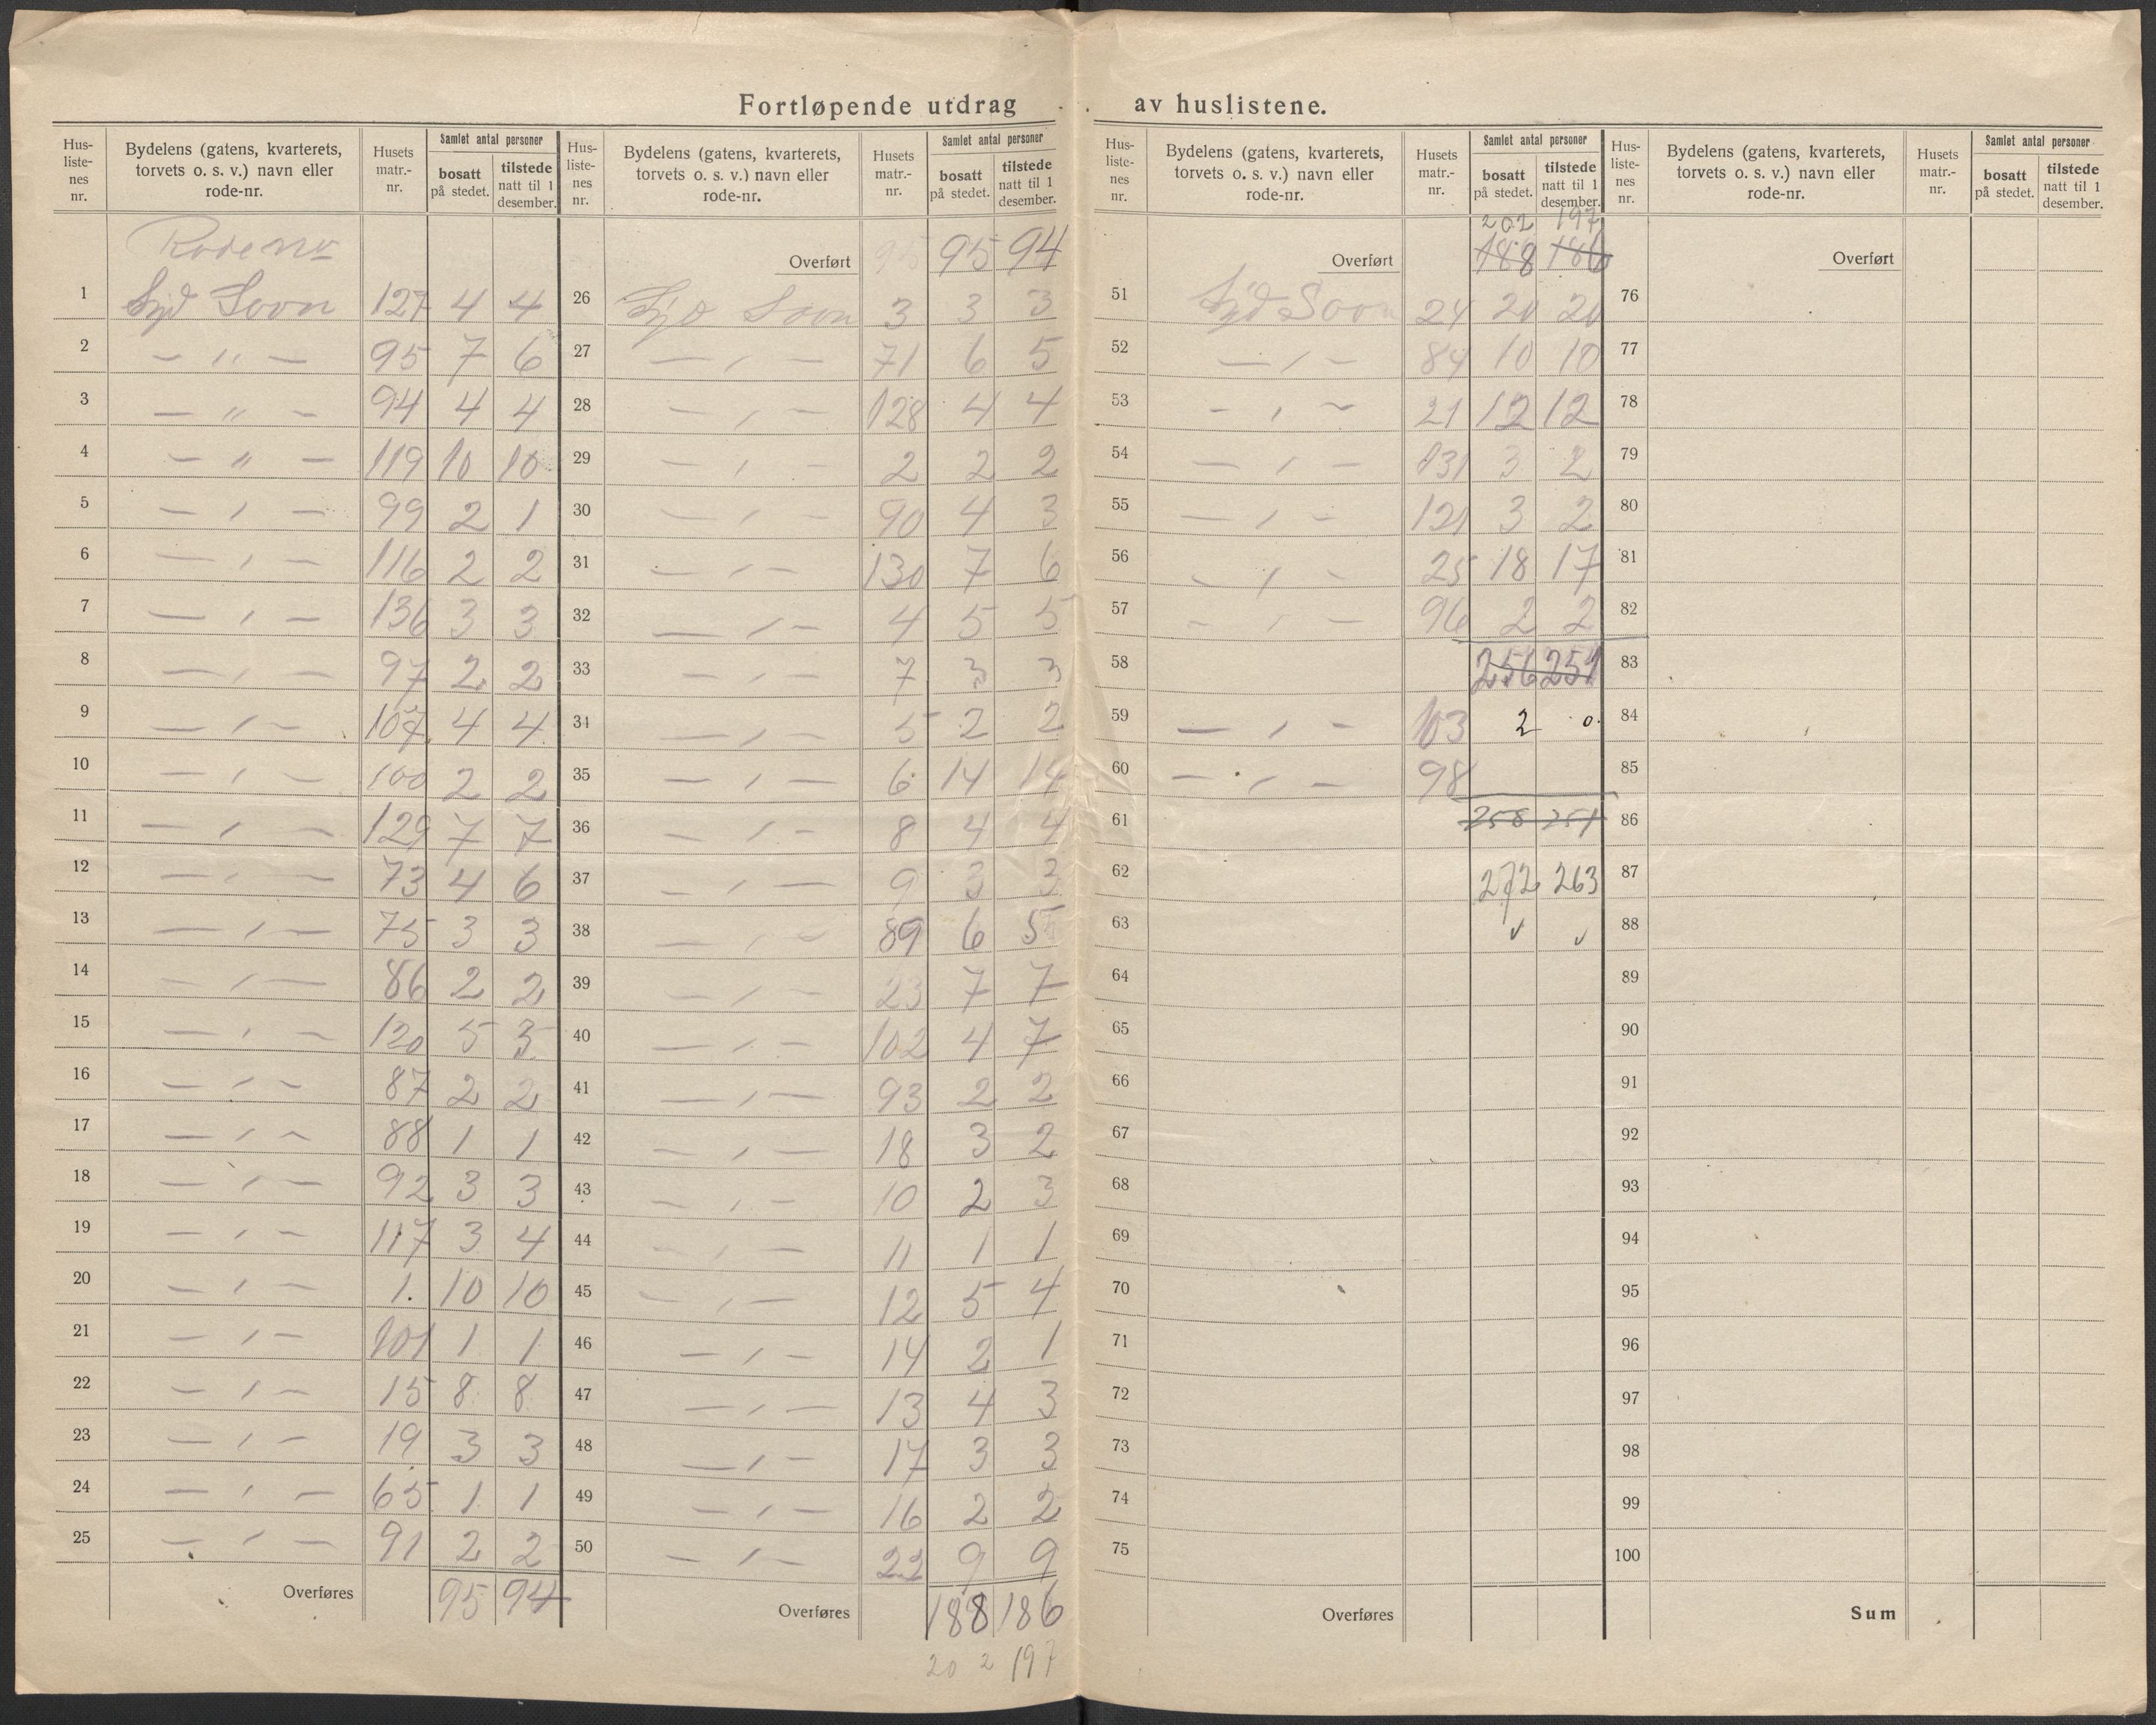 Fortløpende utdrag av huslistene.
Hus-liste-nes nr. | Bydelens (gatens, kvarterets, torvets o. s. v.) navn eller rode-nr. | Husets matr.-nr. | Samlet antal personer | bosatt på stedet. | tilstede natt til 1 desember.
Rode nr
1 Syd Soon 127 4 4
2 — " — 95 7 6
3 — " — 94 4 4
4 — " — 119 10 10
5 — " — 99 2 1
6 — " — 116 2 2
7 — " — 136 3 3
8 — " — 97 2 2
9 — " — 107 4 4
10 — " — 100 2 2
11 — " — 129 7 7
12 — " — 73 4 6
13 — " — 75 3 3
14 — " — 86 2 2
15 — " — 120 5 3
16 — " — 87 2 2
17 — " — 88 1 1
18 — " — 92 3 3
19 — " — 117 3 4
20 — " — 1. 10 10
21 — " — 101 1 1
22 — " — 15 8 8
23 — " — 19 3 3
24 — " — 65 1 1
25 — " — 91 2 2
Overføres 95 94
Hus-liste-nes nr. | Bydelens (gatens, kvarterets, torvets o. s. v.) navn eller rode-nr. | Husets matr.-nr. | Samlet antal personer | bosatt på stedet. | tilstede natt til 1 desember.
Overført 95 95 94
26 Syd Soon 3 3 3
27 — " — 71 6 5
28 — " — 128 4 4
29 — " — 2 2 2
30 — " — 90 4 3
31 — " — 130 7 6
32 — " — 4 5 5
33 — " — 7 3 3
34 — " — 5 2 2
35 — " — 6 14 14
36 — " — 8 4 4
37 — " — 9 3 3
38 — " — 89 6 5
39 — " — 23 7 7
40 — " — 102 4 7
41 — " — 93 2 2
42 — " — 18 3 2
43 — " — 10 2 3
44 — " — 11 1 1
45 — " — 12 5 4
46 — " — 14 2 1
47 — " — 13 4 3
48 — " — 17 3 3
49 — " — 16 2 2
50 — " — 22 9 9
Overføres 188 186
202 197
Hus-liste-nes nr. | Bydelens (gatens, kvarterets, torvets o. s. v.) navn eller rode-nr. | Husets matr.-nr. | Samlet antal personer | bosatt på stedet. | tilstede natt til 1 desember.
202 197
Overført 188 186
51 Syd Soon 24 20 20
52 — " — 84 10 10
53 — " — 21 12 12
54 — " — 131 3 2
55 — " — 121 3 2
56 — " — 25 18 17
57 — " — 96 2 2
58 256 251
59 — " — 103 2 0
60 — " — 98
61 258 251
62 272 263
63 ✓ ✓
64
65
66
67
68
69
70
71
72
73
74
75
Overføres
Hus-liste-nes nr. | Bydelens (gatens, kvarterets, torvets o. s. v.) navn eller rode-nr. | Husets matr.-nr. | Samlet antal personer | bosatt på stedet. | tilstede natt til 1 desember.
Overført
76
77
78
79
80
81
82
83
84
85
86
87
88
89
90
91
92
93
94
95
96
97
98
99
100
Sum